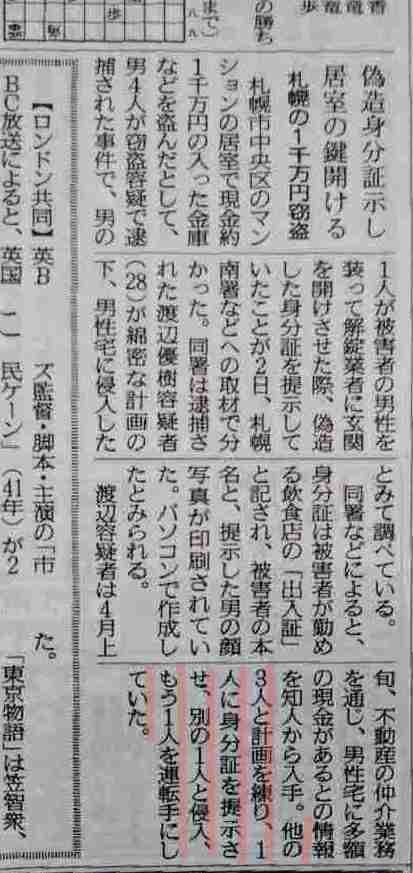 の勝ち
まで）
歩
偽造身分証示し
居室の鍵開ける
札幌の１千万円窃盗
札幌市中央区のマン
ションの居室で現金約
１千万円の入った金庫
などを盗んだとして、
男４人が窃盗容疑で逮
捕された事件で、男の
１人が被害者の男性を
装って解錠業者に玄関
を開けさせた際、偽造
した身分証を提示して
いたことが２日、札幌
南署などへの取材で分
かった。同署は逮捕さ
れた渡辺優樹容疑者
（28）が綿密な計画の
下、男性宅に侵入した
とみて調べている。
同署などによると、
身分証は被害者が勤め
る飲食店の「出入証」
と記され、被害者の本
名と、提示した男の顔
写真が印刷されてい
た。パソコンで作成し
たとみられる。
渡辺容疑者は４月上
旬、不動産の仲介業務
を通じ、男性宅に多額
の現金があるとの情報
を知人から入手。他の
３人と計画を練り、１
人に身分証を提示さ
せ、別の１人と侵入、
もう１人を運転手にし
ていた。
【ロンドン共同】英Ｂ
ＢＣ放送によると、英国
ズ監督・脚本・主演の「市
民ケーン」（41年）が２
た。
「東京物語」は笠智衆、